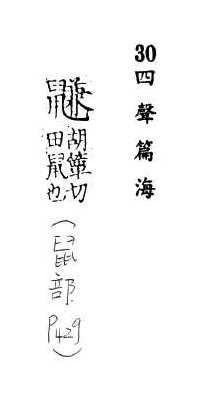 30四聲篇海
鼸
胡簟切
田鼠也
(鼠部 P429)